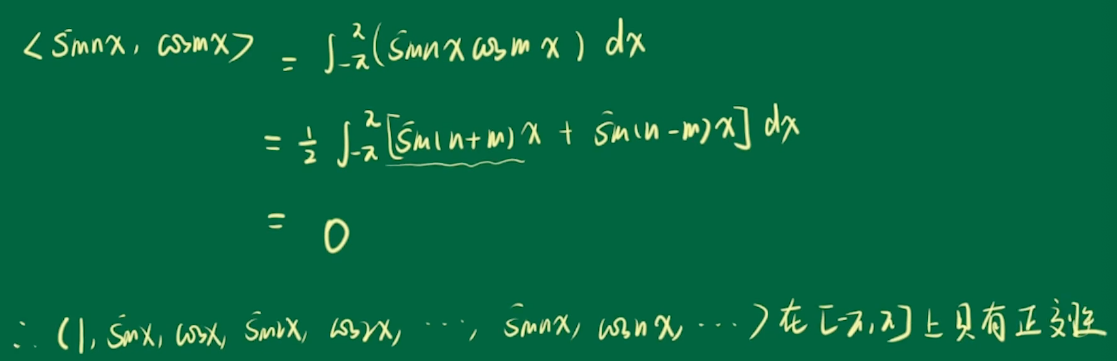 <sinnx, cosmx> = ∫_{-π}^{π} (sinnx cosmx) dx
= 1/2 ∫_{-π}^{π} [sin(n+m)x + sin(n-m)x] dx
= 0
∴ (1, sinx, cosx, sin2x, cos2x, ⋯, sinnx, cosnx, ⋯) 在 [-π,π] 上具有正交性